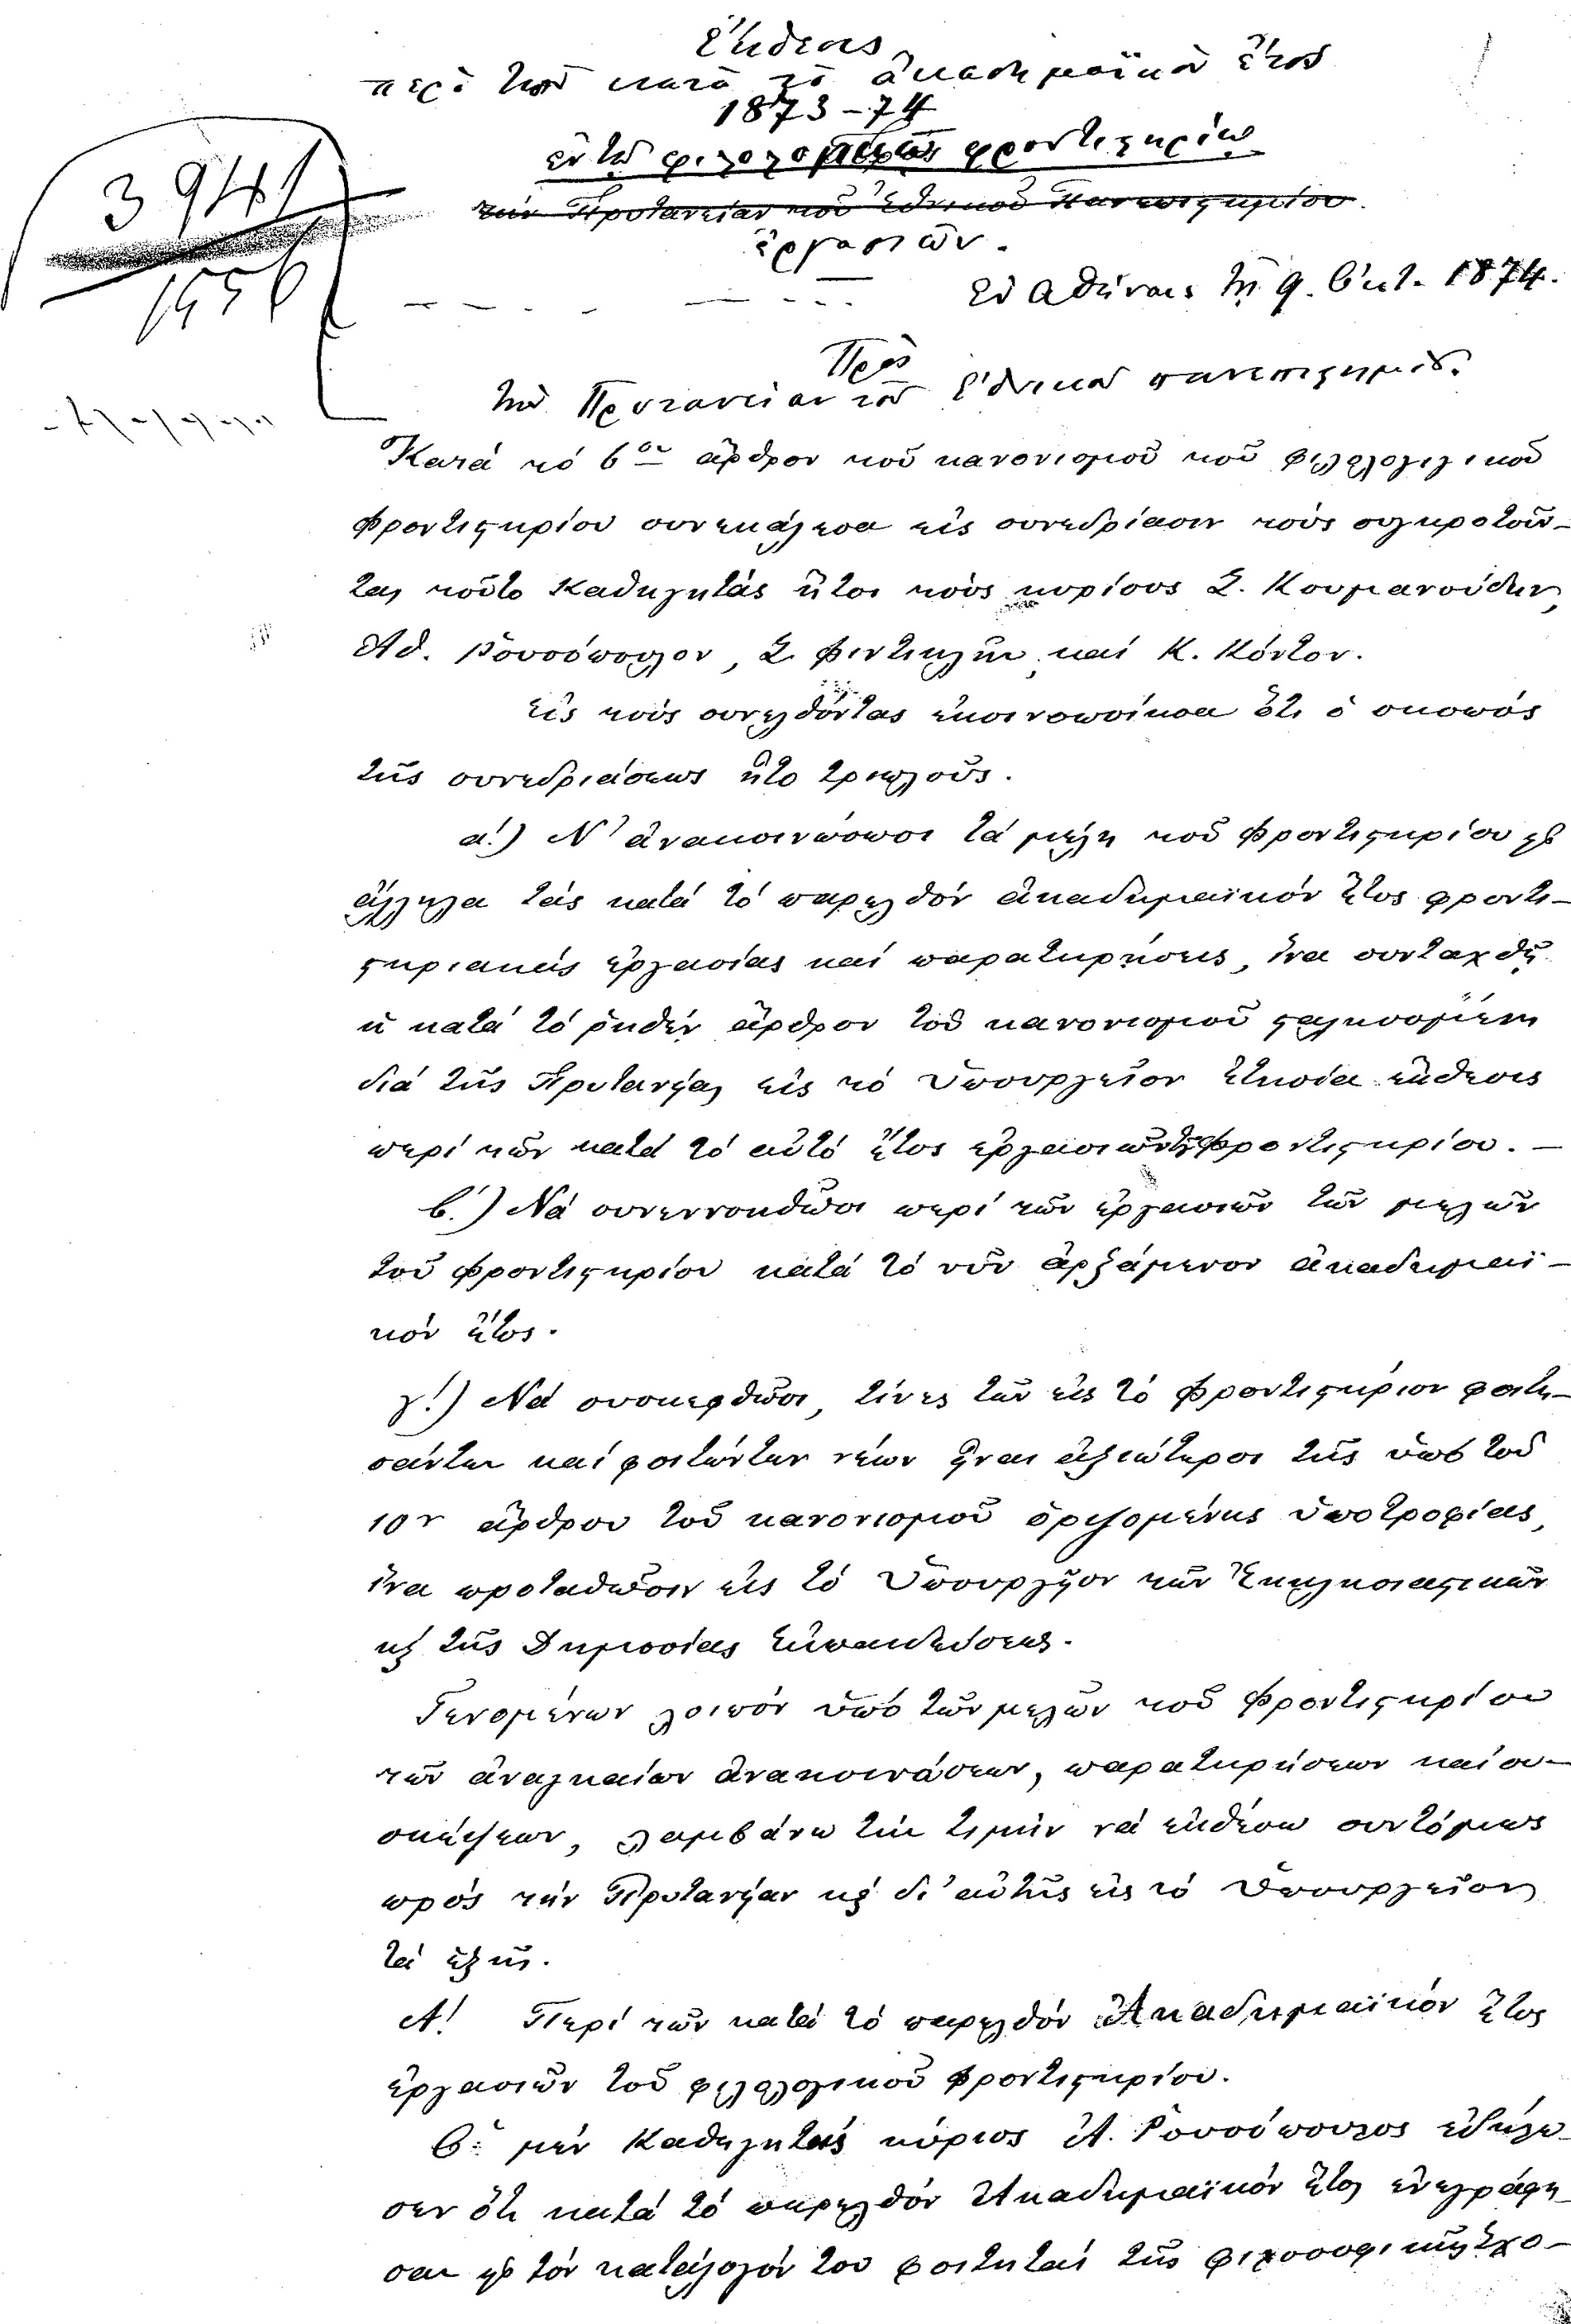 Ἔκθεσις
περὶ τῶν κατὰ τὸ ἀκαδημαϊκὸν ἔτος
1873-74
ἐν τῷ φιλολογικῷ φροντιστηρίῳ
τὴν Πρυτανείαν τοῦ Ἐθνικοῦ Πανεπιστημίου.
ἐργασιῶν.
3941
1956
Ἐν Ἀθήναις τῇ 9. Ὀκτ. 1874.
Πρὸς
τὴν Πρυτανείαν τοῦ Ἐθνικοῦ πανεπιστημίου.
Κατά τό 6ον ἄρθρον τοῦ κανονισμοῦ τοῦ φιλολογικοῦ
Φροντιστηρίου συνεκάλεσα εἰς συνεδρίασιν τούς συγκροτοῦν-
τας τοῦτο Καθηγητάς ἤτοι τούς κυρίους Σ. Κουμανούδην,
Ἀθ. Ῥουσόπουλον, Σ. Φιντικλῆν, καί Κ. Κόντον.
Εἰς τούς συνελθόντας ἐκοινοποίησα ὅτι ὁ σκοπός
τῆς συνεδριάσεως ἦτο τριπλοῦς.
α΄.) Ν' ἀνακοινώσωσι τά μέλη τοῦ Φροντιστηρίου εἰς
ἄλληλα τάς κατά τό παρελθόν ἀκαδημαϊκόν ἔτος φροντι-
στηριακάς ἐργασίας καί παρατηρήσεις, ἵνα συνταχθῇ
ἡ κατά τό ῥηθέν ἄρθρον τοῦ κανονισμοῦ σταλησομένη
διά τῆς Πρυτανείας εἰς τό Ὑπουργεῖον ἐτησία ἔκθεσις
περί τῶν κατά τό αὐτό ἔτος ἐργασιῶν τοῦ Φροντιστηρίου. —
β΄.) Νά συνεννοηθῶσι περί τῶν ἐργασιῶν τῶν μελῶν
τοῦ Φροντιστηρίου κατά τό νῦν ἀρξάμενον ἀκαδημαϊ-
κόν ἔτος.
γ΄.) Νά συσκεφθῶσι, τίνες τῶν εἰς τό Φροντιστήριον φοιτη-
σάντων καί φοιτώντων νέων εἶναι ἀξιώτεροι τῆς ὑπό τοῦ
10ου ἄρθρου τοῦ κανονισμοῦ ὁριζομένης ὑποτροφίας,
ἵνα προταθῶσιν εἰς τό Ὑπουργεῖον τῶν Ἐκκλησιαστικῶν
καὶ τῆς Δημοσίας Ἐκπαιδεύσεως.
Γενομένων λοιπόν ὑπό τῶν μελῶν τοῦ Φροντιστηρίου
τῶν ἀναγκαίων ἀνακοινώσεων, παρατηρήσεων καί συ-
σκέψεων, λαμβάνω τήν τιμήν νά ἐκθέσω συντόμως
πρός τήν Πρυτανείαν καὶ δι' αὐτῆς εἰς τό Ὑπουργεῖον
τά ἑξῆς.
Α΄. Περί τῶν κατά τό παρελθόν Ἀκαδημαϊκόν ἔτος
ἐργασιῶν τοῦ φιλολογικοῦ Φροντιστηρίου.
Ὁ μέν Καθηγητής κύριος Ἀ. Ῥουσόπουλος ἐδήλω-
σεν ὅτι κατά τό παρελθόν Ἀκαδημαϊκόν ἔτος ἐνεγράφη-
σαν εἰς τόν κατάλογόν του φοιτηταί τῆς φιλοσοφικῆς Σχο-